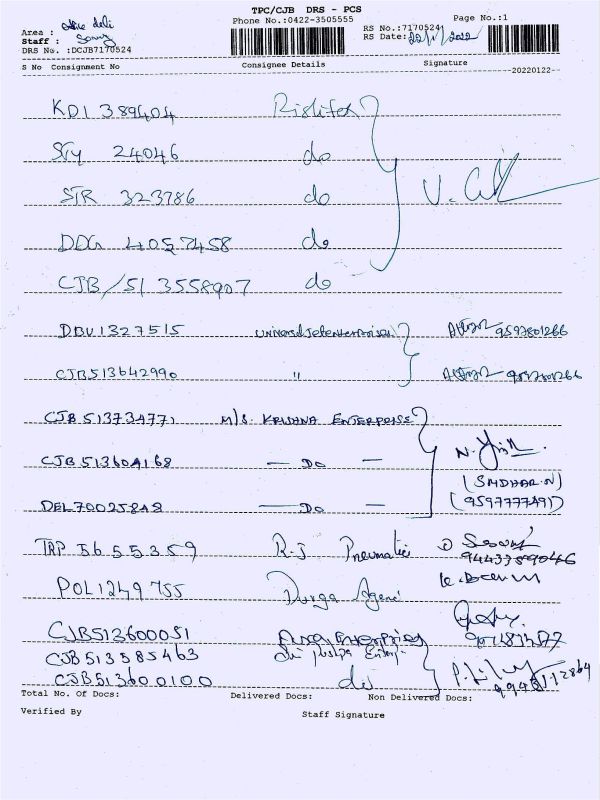 TPC/CJB DRS - PCS
Phone No.:0422-3505555 Page No.:1
Area :
Staff : Sonny RS No.:7170524
DRS No. :DCJB7170524 RS Date: 22/1/2022
S No Consignment No Consignee Details Signature
20220122
KDI 389404
STY 24046 do
STR 323786 do
DDG 4057458 do
CJB/513558907 do
DBU1327515 Universal Jet Enterprises 9597801266
CJB513642990 " 9597801266
CJB513734771 M/S. KRISHNA ENTERPRISE
CJB513604168 — DO —
(SRIDHAR.N)
DEL70025848 — DO —
(9597777491)
TRP 5655359 R.J Pneumatic
9443359046
POL1249755 Durga Agenc
CJB512600051 Enterprises
CJB513585463 Sri pushpa Enterp
CJB513600100 do
Total No. Of Docs: Delivered Docs: Non Delivered Docs:
Verified By Staff Signature